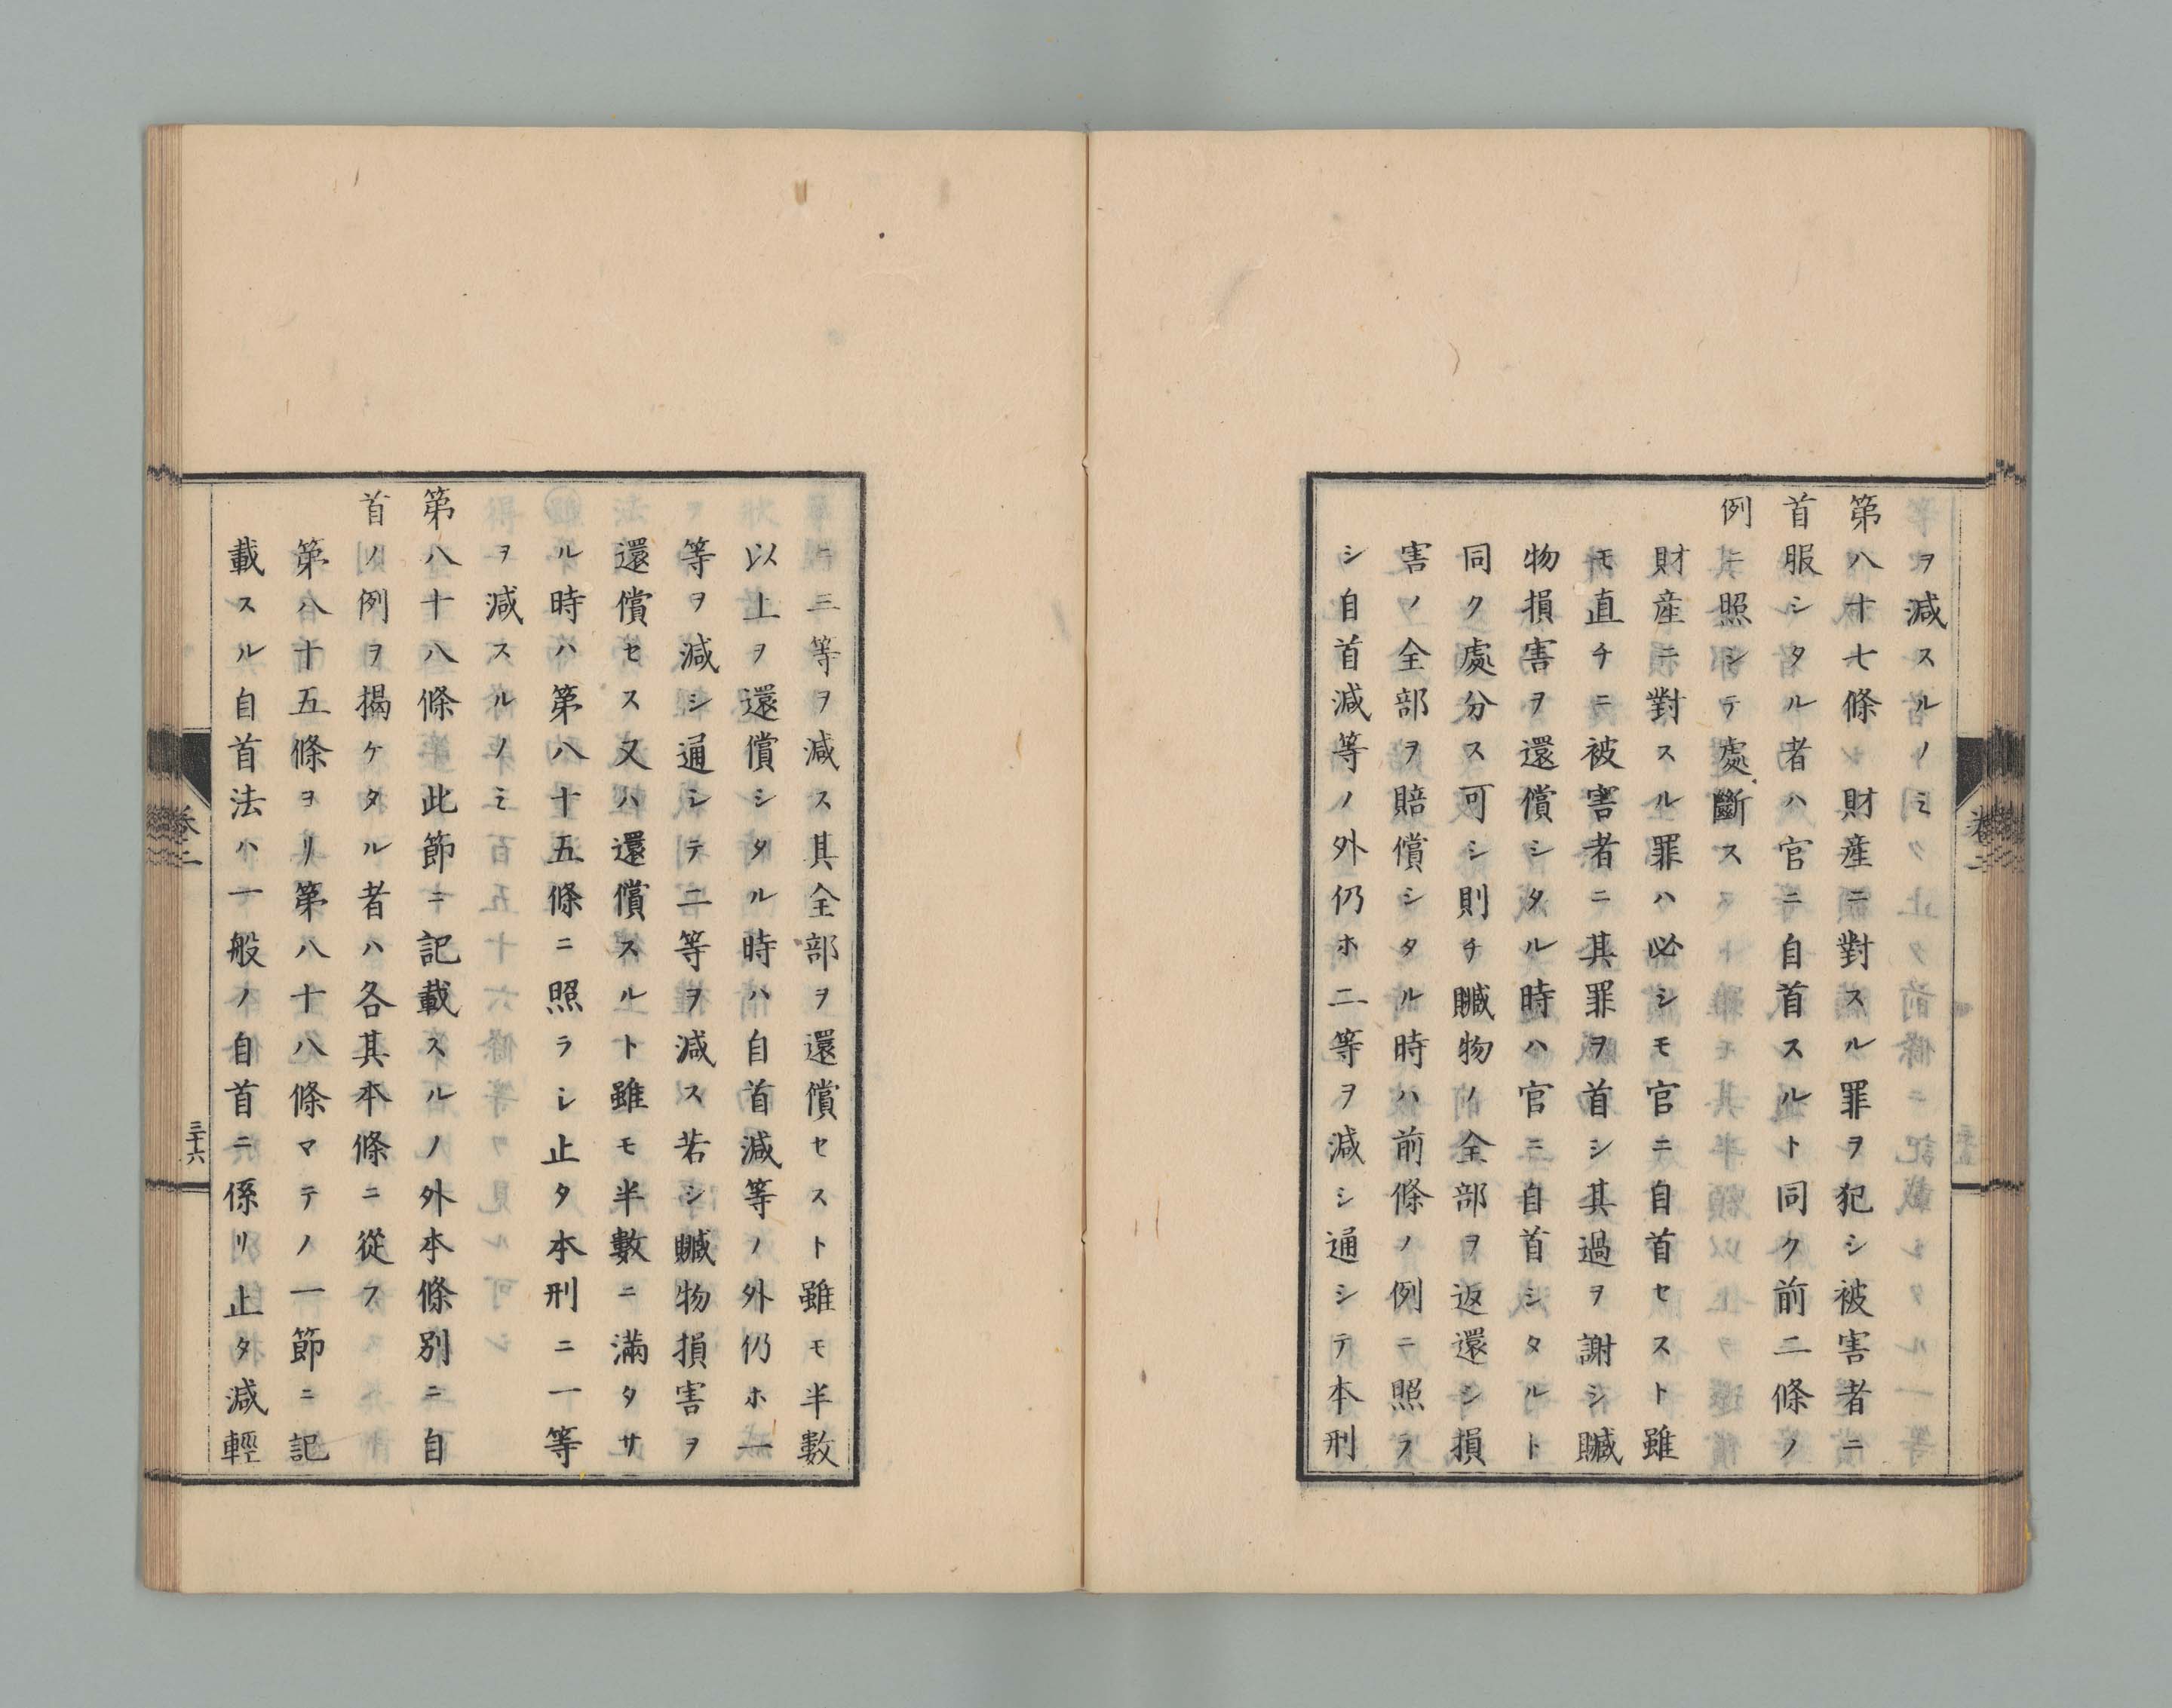 ヲ減スルノミ
第八十七條 財産ニ對スル罪ヲ犯シ被害者ニ
首服シタル者ハ官ニ自首スルト同ク前二條ノ
例ニ照シテ處斷ス
財産ニ對スル罪ハ必シモ官ニ自首セスト雖
モ直チニ被害者ニ其罪ヲ首シ其過ヲ謝シ贓
物損害ヲ還償シタル時ハ官ニ自首シタルト
同ク處分ス可シ則チ贓物ノ全部ヲ返還シ損
害ノ全部ヲ賠償シタル時ハ前條ノ例ニ照ラ
シ自首減等ノ外仍ホ二等ヲ減シ通シテ本刑
ニ三等ヲ減ス其全部ヲ還償セスト雖モ半數
以上ヲ還償シタル時ハ自首減等ノ外仍ホ一
等ヲ減シ通シテ二等ヲ減ス若シ贓物損害ヲ
還償セス又ハ還償スルト雖モ半數ニ滿タサ
ル時ハ第八十五條ニ照ラシ止タ本刑ニ一等
ヲ減スルノミ
第八十八條 此節ニ記載スルノ外本條別ニ自
首ノ例ヲ揭ケタル者ハ各其本條ニ從フ
第八十五條ヨリ第八十八條マテノ一節ニ記
載スル自首法ハ一般ノ自首ニ係リ止タ減輕
卷二
三十六